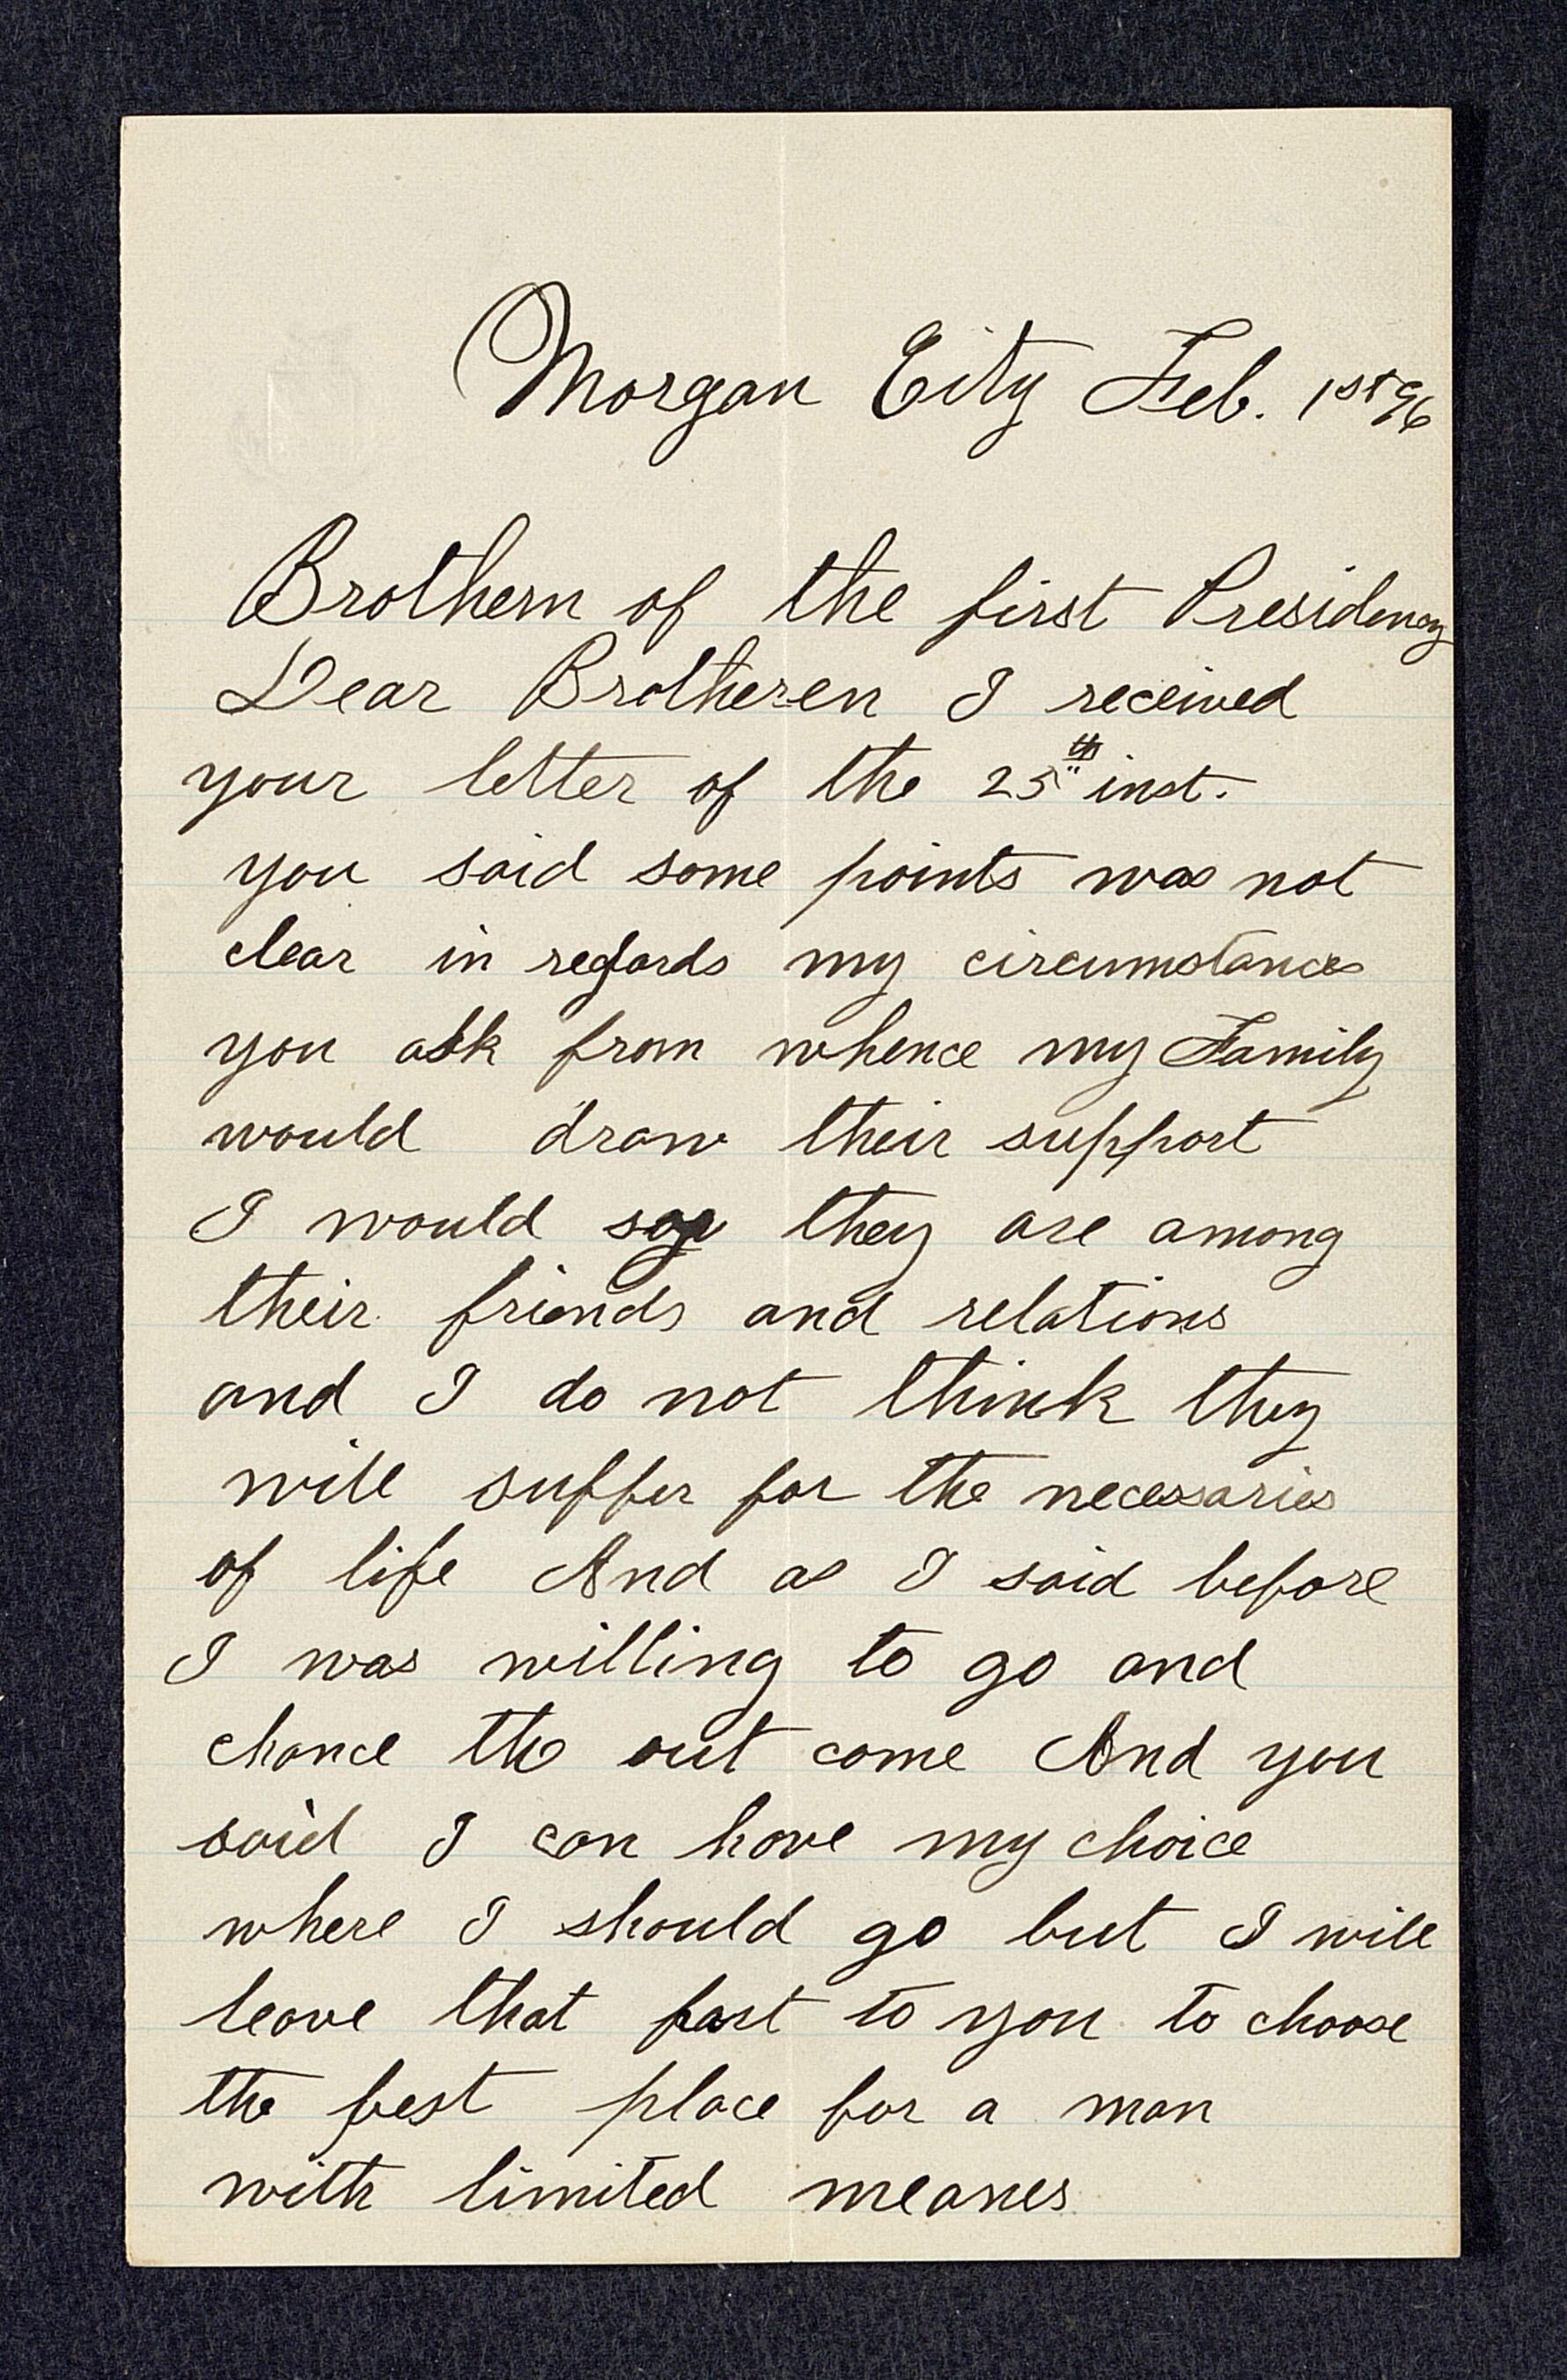 Morgan City Feb. 1st 96
Brothern of the first Presidency
Dear Brotheren I received
your letter of the 25th inst.
you said some points was not
clear in regards my circumstances
you ask from whence my Family
would draw their support
I would say they are among
their friends and relations
and I do not think they
will suffer for the necessaries
of life And as I said before
I was willing to go and
chance the out come And you
said I can have my choice
where I should go but I will
leave that part to you to choose
the best place for a man
with limited meanes